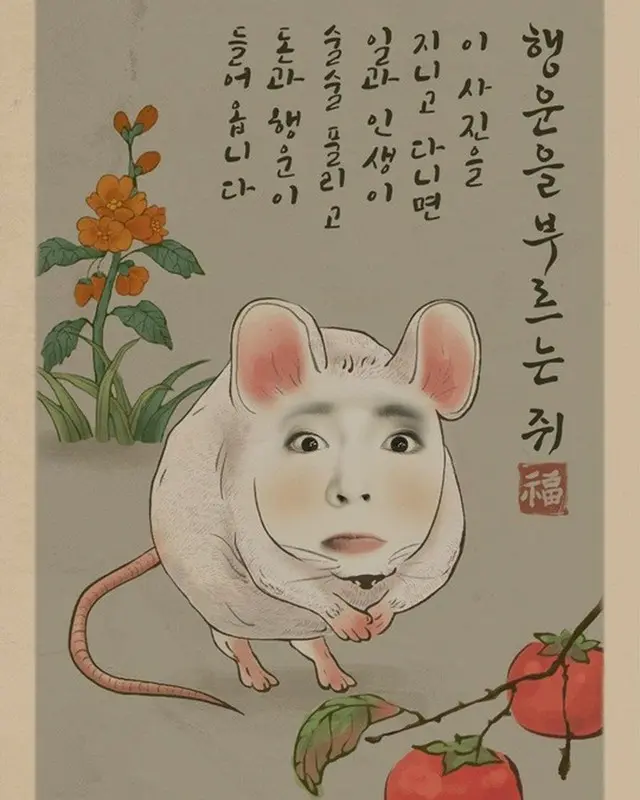 행운을 부르는 쥐
福
이 사진을
지니고 다니면
일과 인생이
술술 풀리고
돈과 행운이
들어옵니다